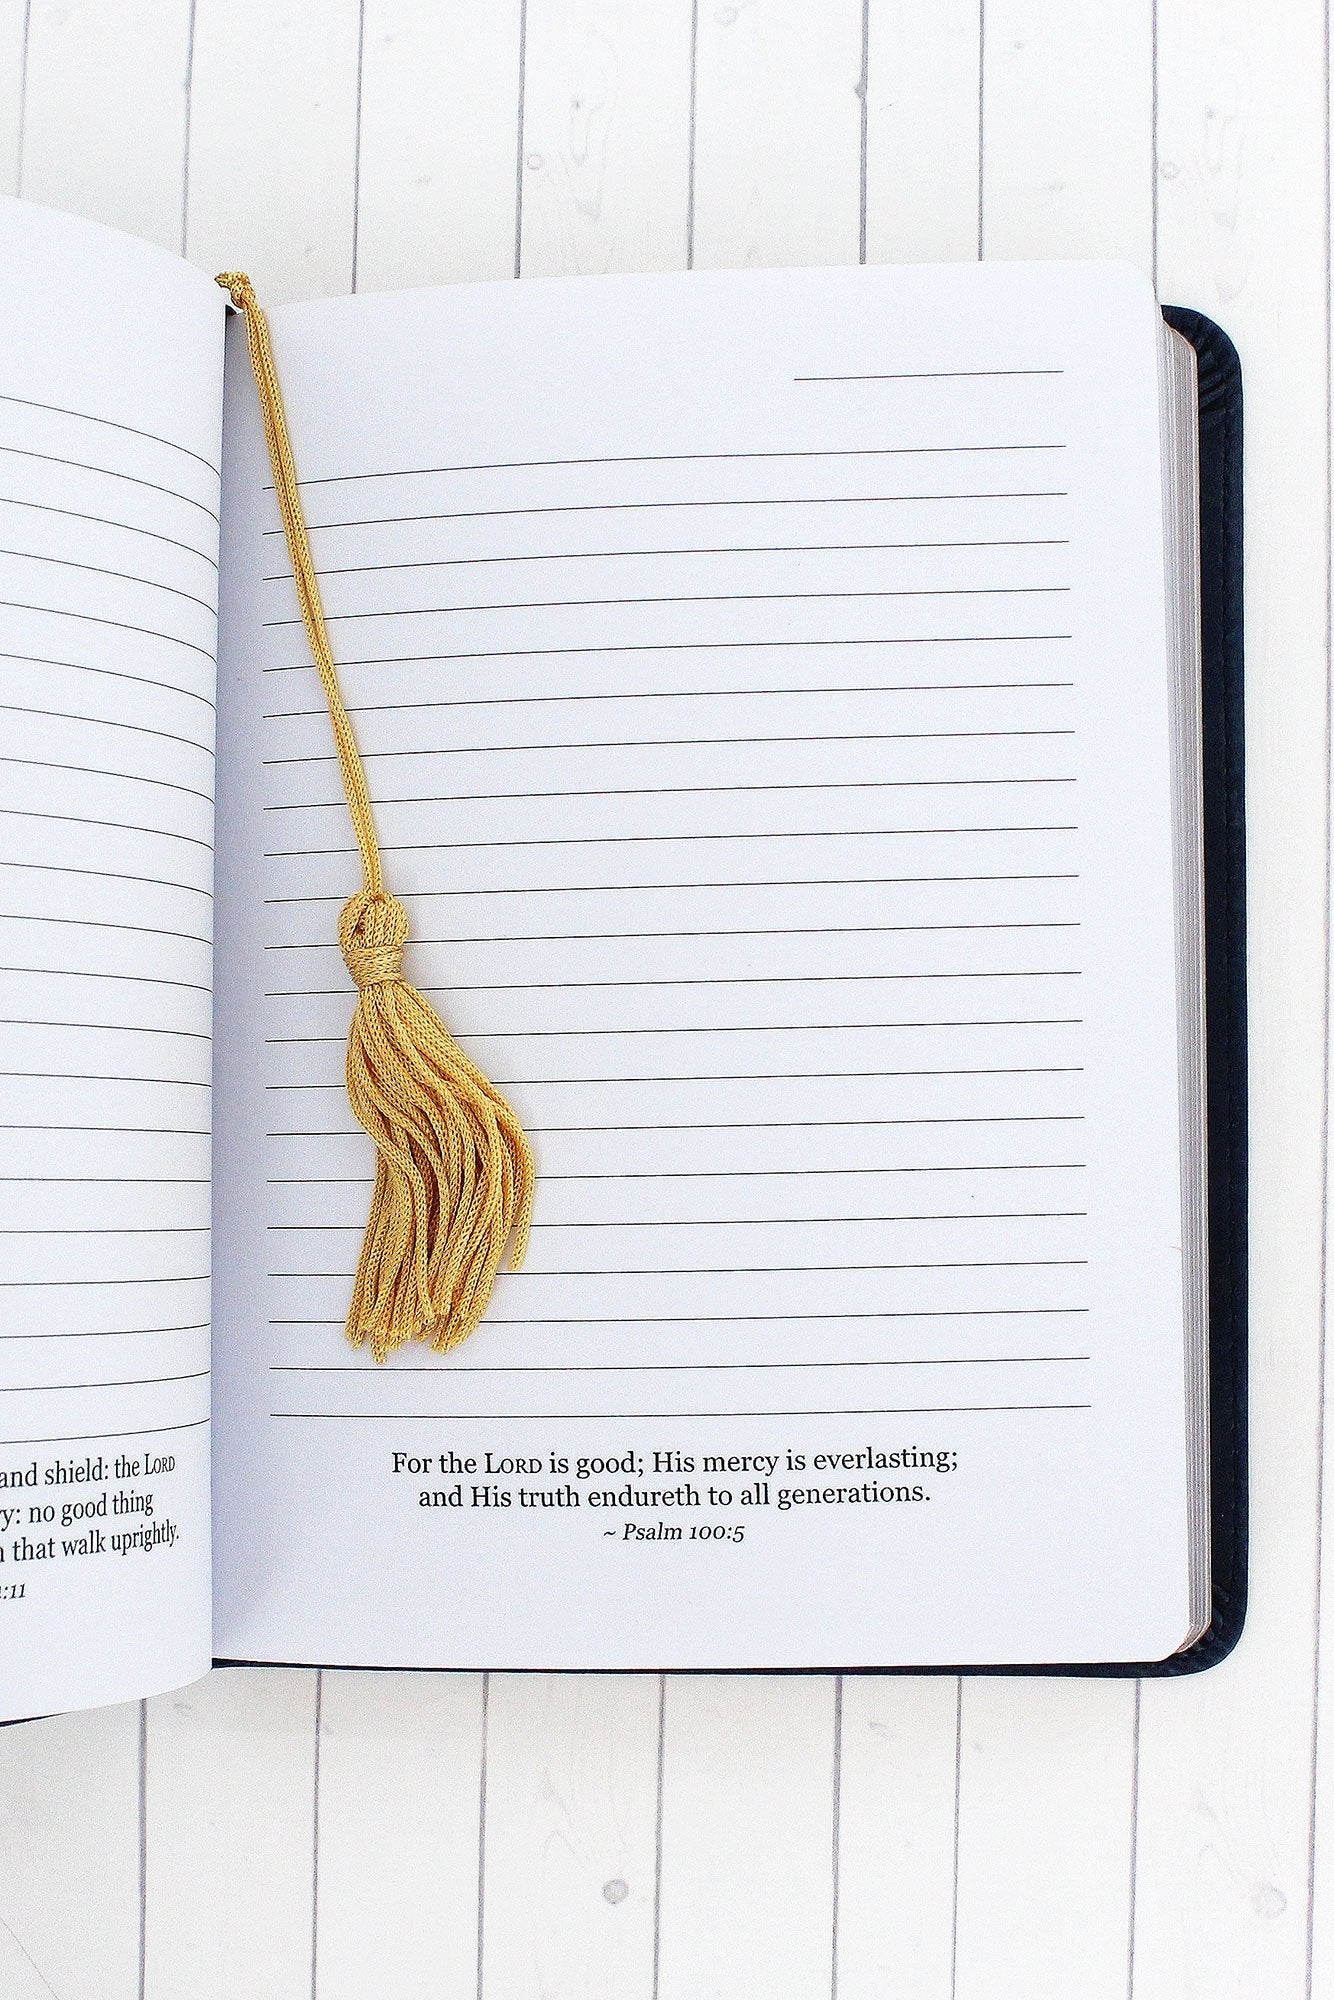 and shield: the LORD
: no good thing
that walk uprightly.
:11
For the LORD is good; His mercy is everlasting;
and His truth endureth to all generations.
~ Psalm 100:5